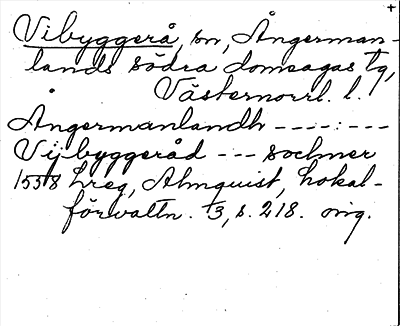 +
Vibyggerå, sn, Ångerman-
lands södra domsagas tg,
Västernorrl. l.
Ångermanlandh ---:---
Vijbyggeråd --- sochner
1558 hreg, Almquist, Lokal-
förvaltn. 3, s. 218. orig.